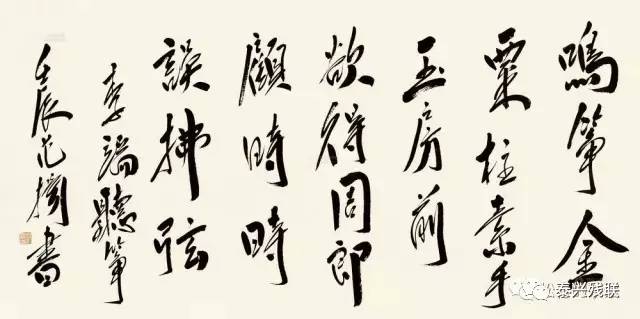 鳴箏金
粟柱素手
玉房前
欲得周郎
顧時時
誤拂弦
李端聽箏
壬辰范書
泰兴残联